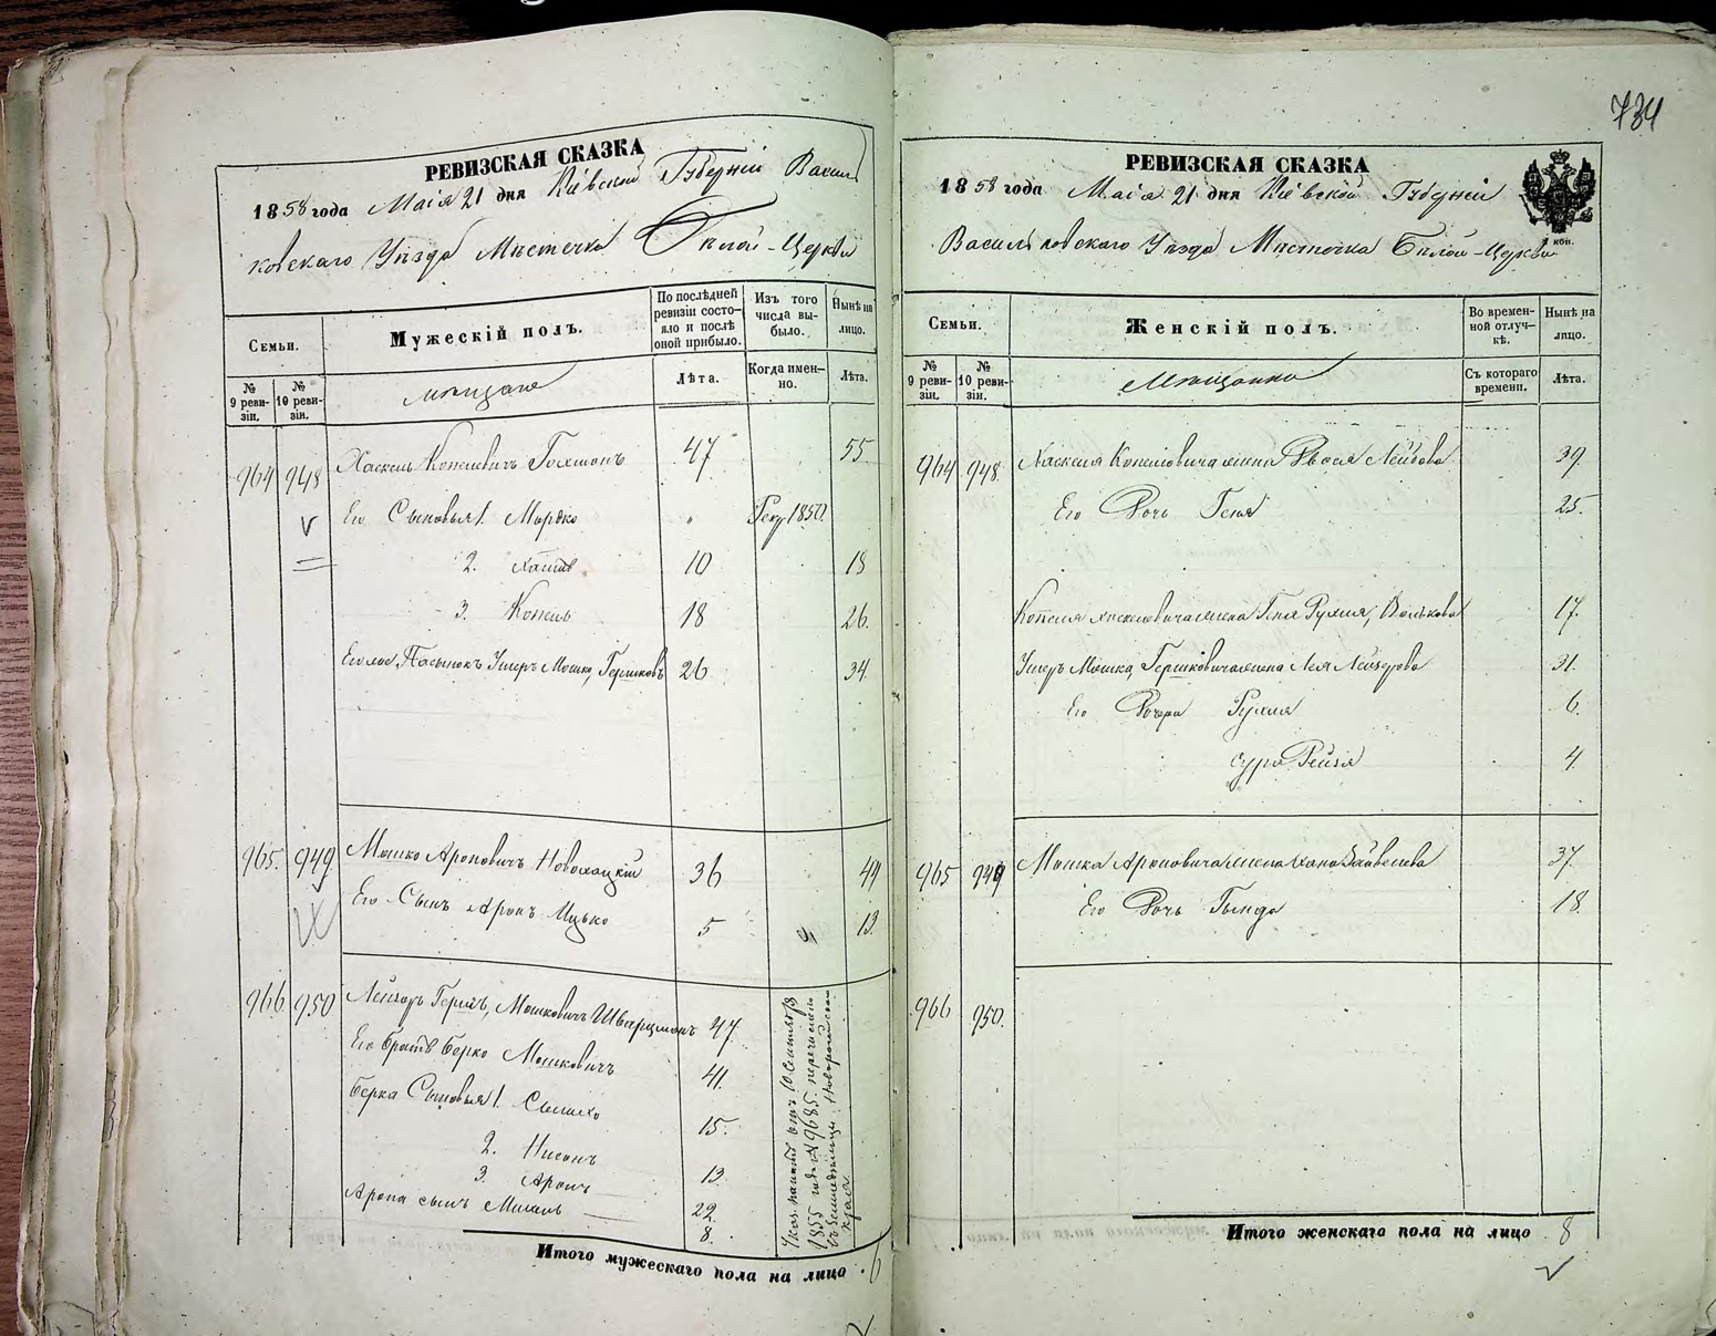 734
РЕВИЗСКАЯ СКАЗКА
1858 года Маія 21 дня Кіевской Губерніи Василь
ковскаго Уѣзда Мѣстечка Бѣлой-Церкви
Семьи.
Мужескій полъ.
По послѣдней ревизіи состо-
яло и послѣ
оной прибыло.
Изъ того
числа вы-
было.
Нынѣ на
лицо.
№ 9 реви-
зіи.
№ 10 реви-
зіи.
мѣщане
Лѣта.
Когда имен-
но.
Лѣта.
964 948 Хаскель Копелевичъ Гохманъ 47 55
Его Сыновья 1. Мордко " Рекр 1850
2. 10 18
3. Копель 18 26
Его же Пасынокъ Ушеръ Мошко, Гершковъ 26 34
965. 949 Мошко Ароновичъ 36 44
Его Сынъ Аронъ Ицько 5 13
966 950 Лейзоръ Гершъ, Мошковичъ Шварцманъ 47
Его братъ Берко Мошковичъ 41
Берка Сыновья 1. 15
2. Нисонъ 13
3. Аронъ 22
Арона сынъ 8
Указ. палаты отъ 10 Сентября
1855 года № 9685. перечислены
въ земледѣльцы Новороссійскаго
края
Итого мужескаго пола на лицо 6
РЕВИЗСКАЯ СКАЗКА
1858 года Маія 21 дня Кіевской Губерніи
Васильковскаго Уѣзда Мѣстечка Бѣлой-Церкви
коп.
Семьи.
Женскій полъ.
Во времен-
ной отлуч-
кѣ.
Нынѣ на
лицо.
№ 9 реви-
зіи.
№ 10 реви-
зіи.
Мѣщанки
Съ котораго
времени.
Лѣта.
964 948 Хаскеля Копелевича жена Двося Лейбова 39
Его Дочь Геня 25.
Копеля Хаскелевича жена Геня Рухля, Волькова 17.
Ушеръ Мошка, Гершковича жена Лея Лейзорова 31.
Его Дочери Рухля 6.
Сура Рейзя 4
965 949 Мошка Ароновича жена Хана 37.
Его Дочь Гында 18
966 950.
Итого женскаго пола на лицо 8